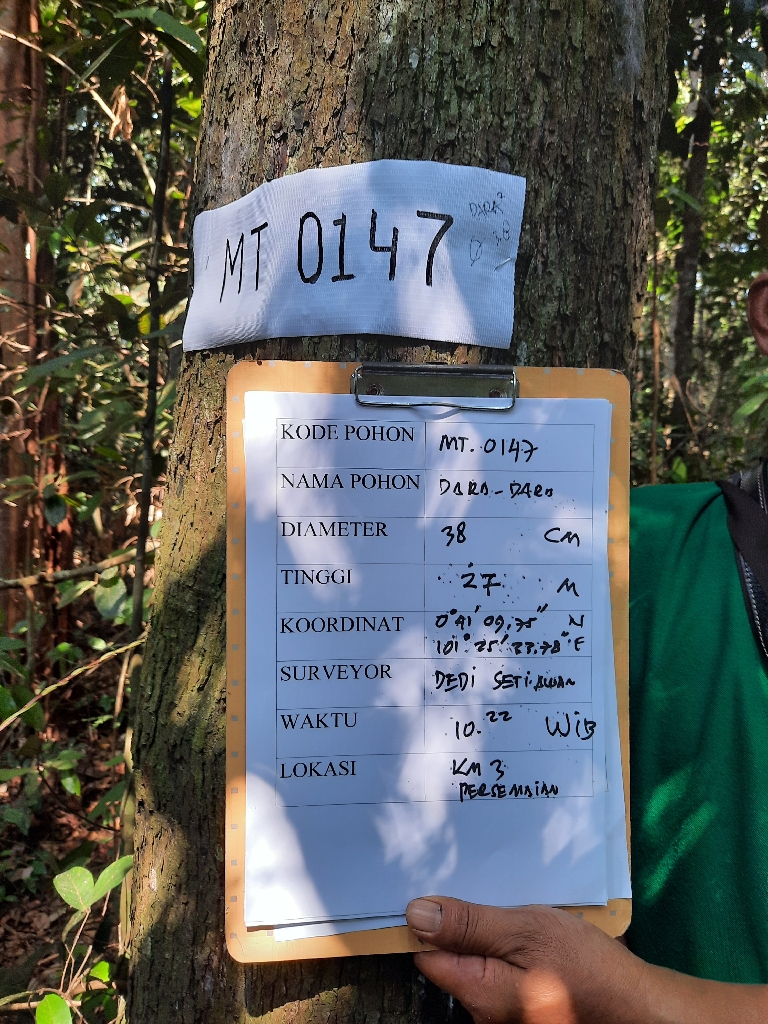 MT 0147
DARA
KODE POHON MT. 0147
NAMA POHON DARA-DARA
DIAMETER 38 CM
TINGGI 27 M
KOORDINAT 0°41'09,75" N
101°25'33.78"E
SURVEYOR DEDI SETIAWAN
WAKTU 10.22 WIB
LOKASI KM 3